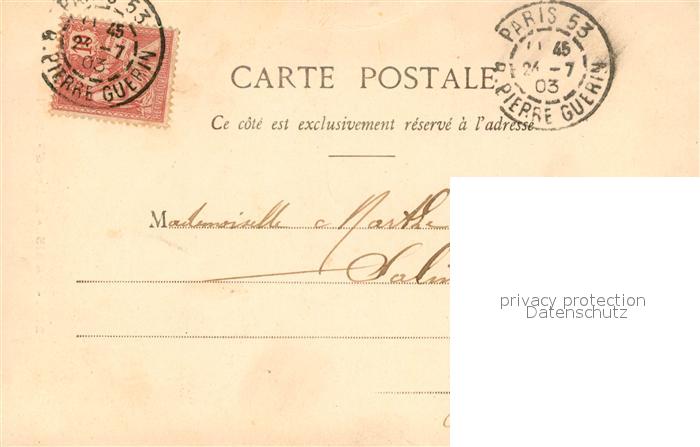 PARIS 53
11 45
24 -7
03
R. PIERRE GUERIN
PARIS 53
11 45
24 -7
03
R. PIERRE GUERIN
CARTE POSTALE
Ce côté est exclusivement réservé à l'adresse
Mademoiselle Marthe
privacy protection
Datenschutz